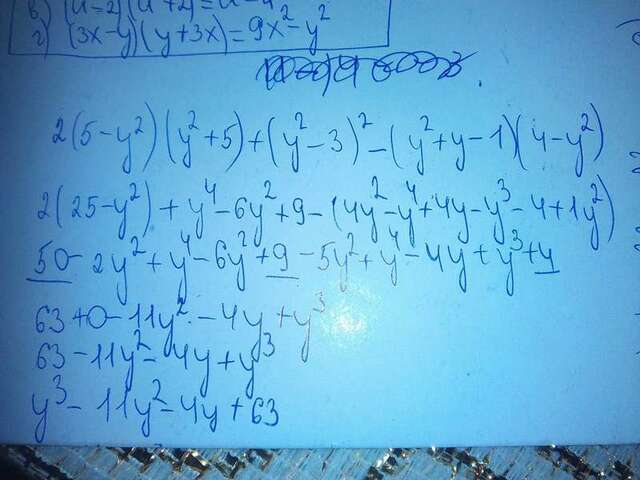 в) (а-2)(а+2)=а-4
г) (3x-y)(y+3x)=9x²-y²
2(5-y²)(y²+5)+(y²-3)²-(y²+y-1)(4-y²)
2(25-y²)+y⁴-6y²+9-(4y²-y⁴+4y-y³-4+1y²)
50-2y²+y⁴-6y²+9-5y²+y⁴-4y+y³+4
63+0-11y²-4y+y³
63-11y²-4y+y³
y³-11y²-4y+63